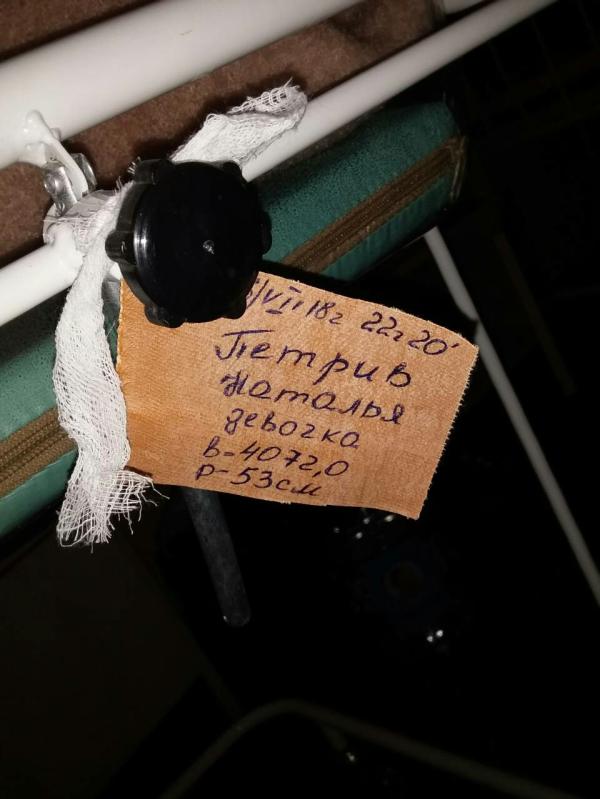 /VII 18г 22ч 20'
Петрив
Наталья
девочка
в-4072,0
р-53см